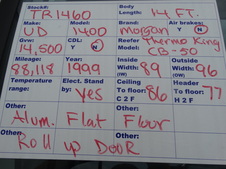 Stock#: Body Length:
TR1460 14 FT.
Make: Model: Brand Air brakes:
UD 1400 morgan Y N
Gvw: CDL: Reefer Thermo King
14,500 Y N Model: CB-50
Mileage: Year: Inside Outside
88,118 1999 Width: 89 Width: 96
Temperature range: Elect. Stand by: Ceiling To floor: Header To floor:
yes 86 77
C 2 F H 2 F
Other:
Alum. Flat Floor
Other:
Roll up DooR